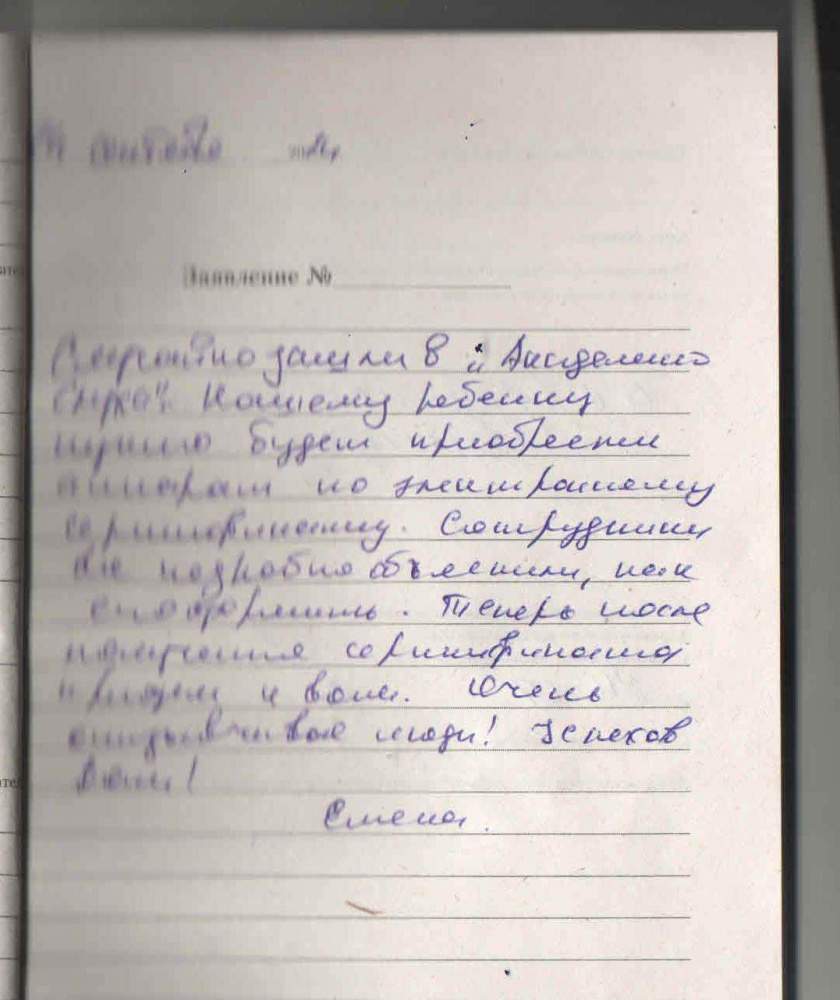 сентября
Заявление №
Случайно зашли в "Академию
слуха". Нашему ребенку
нужно будет приобрести
аппарат по электронному
сертификату. Сотрудники
все подробно объяснили, как
его оформить. Теперь после
получения сертификата
придем к вам. Очень
отзывчивые люди! Успехов
вам!
Елена.